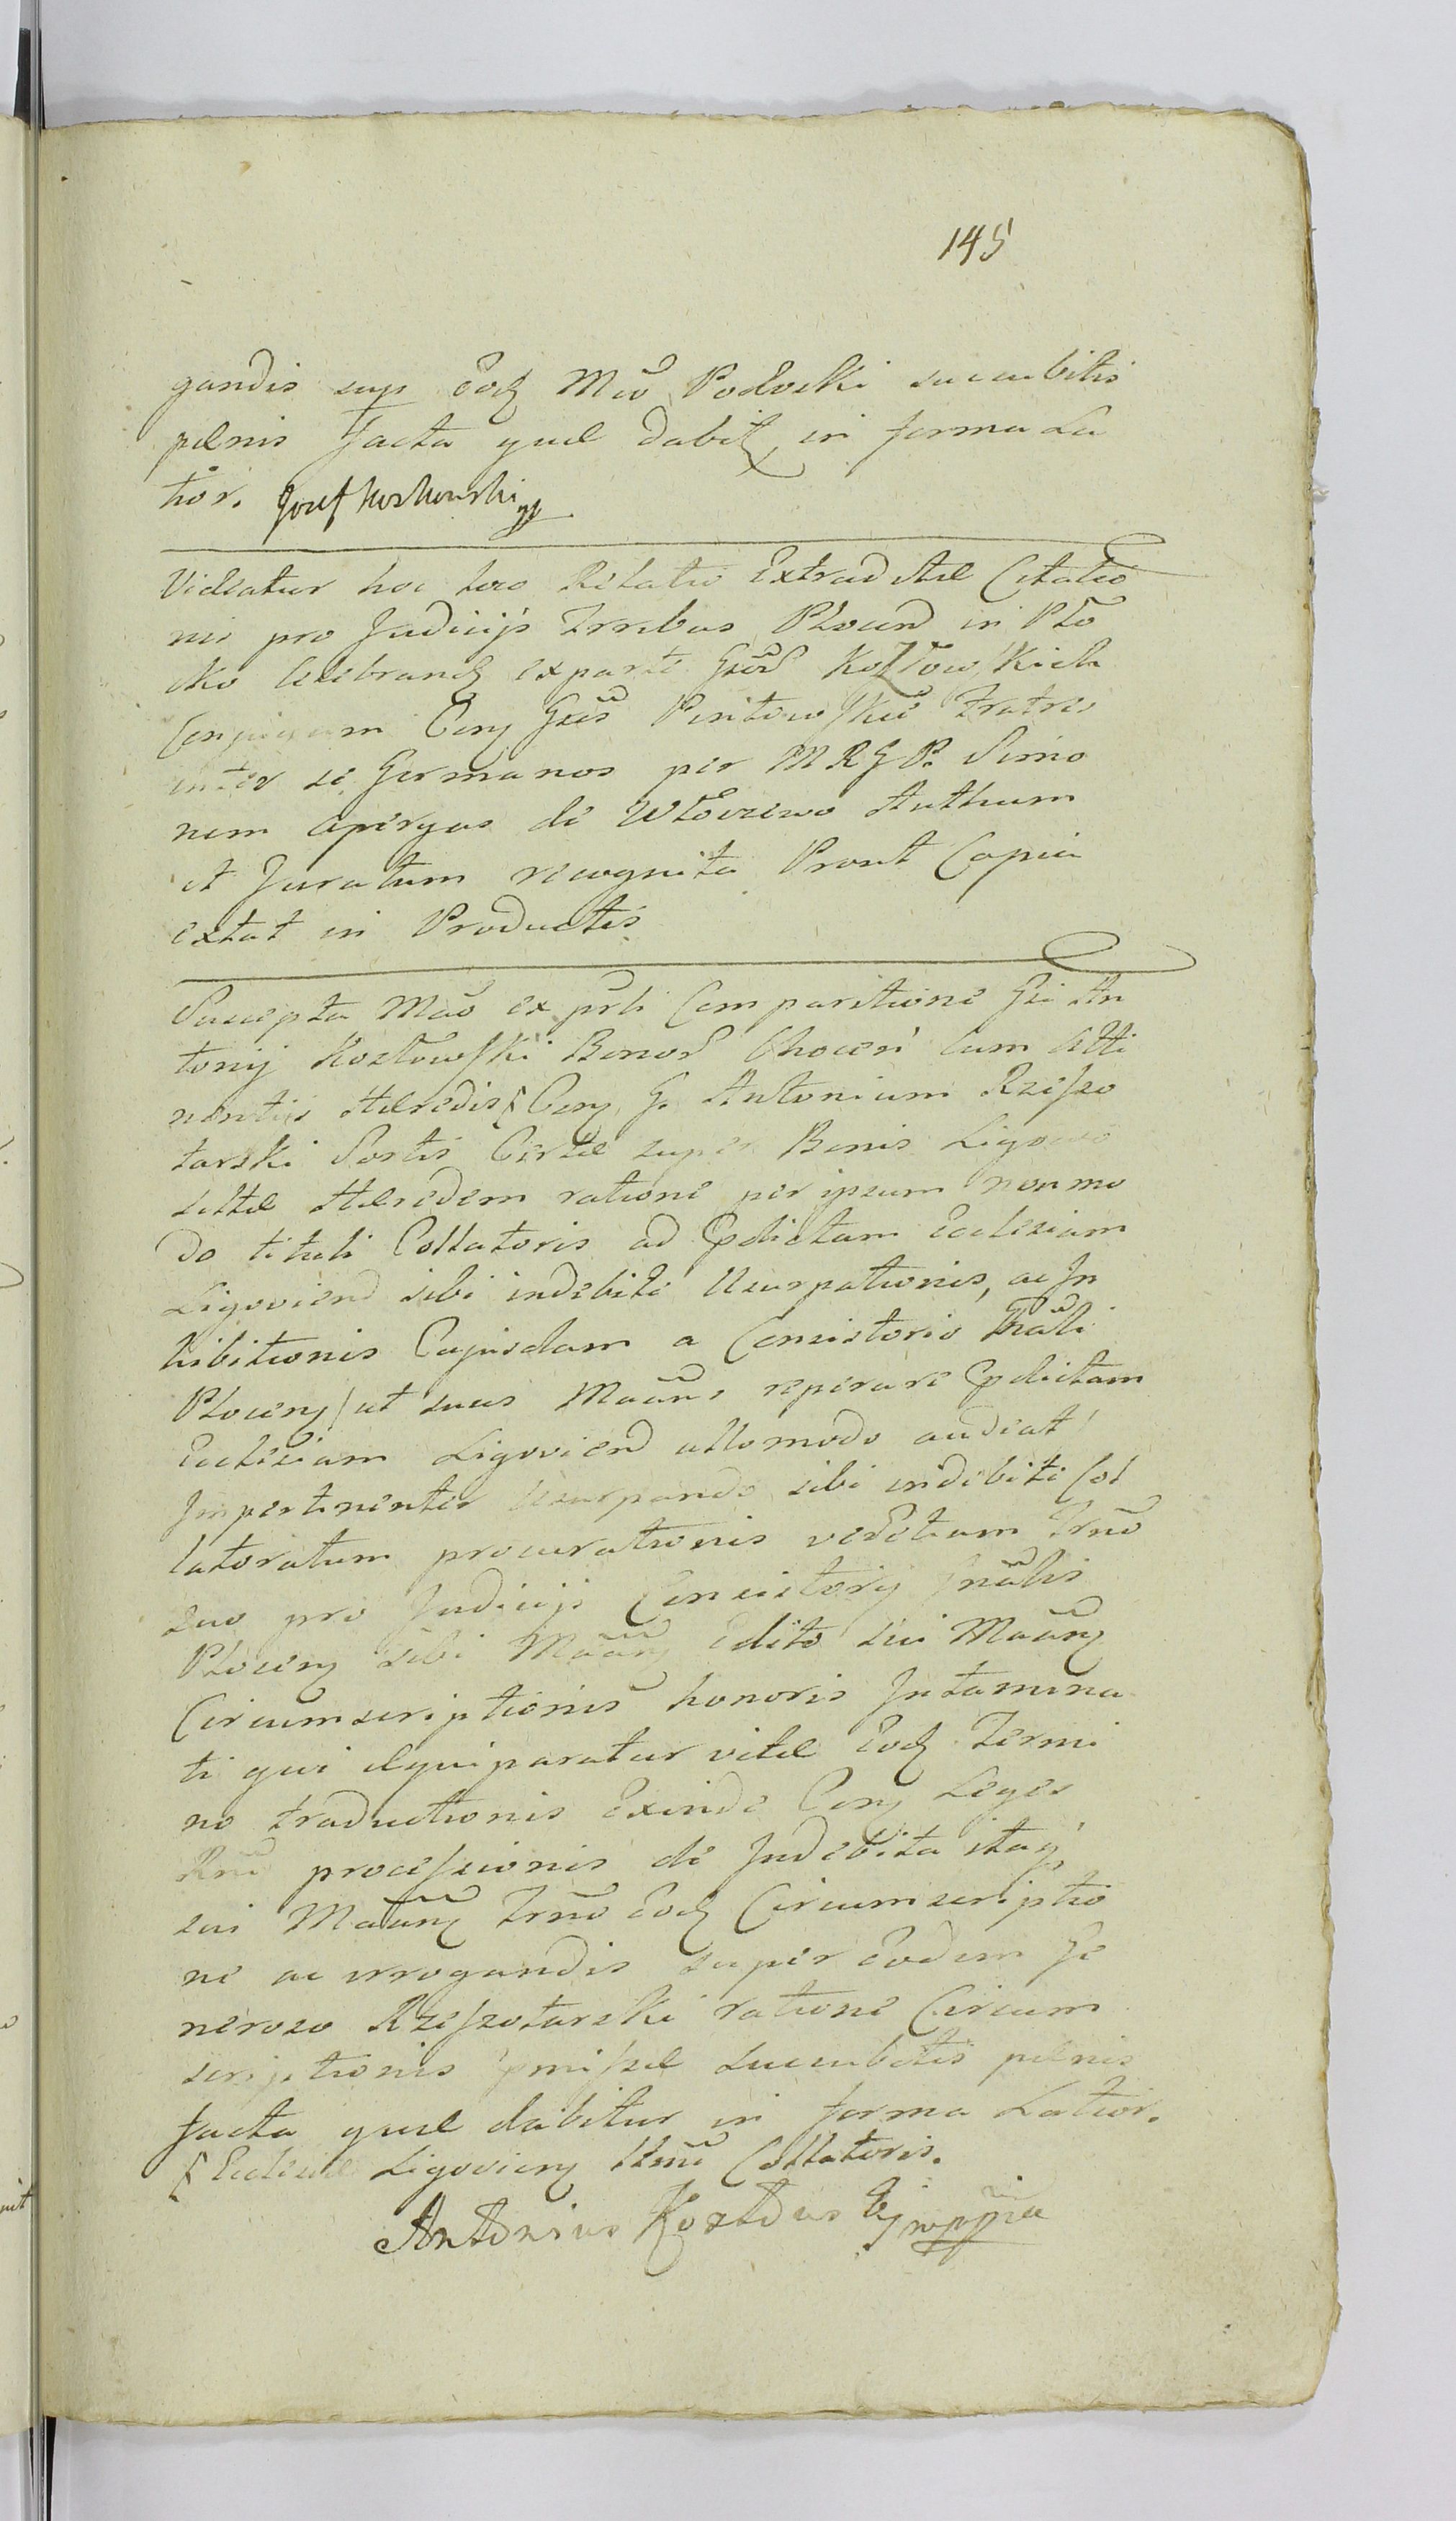 145
gandis sup Eodq Mco Podoski succubitis
pænis Facta quæ dabitq in forma La
tiori. Jozef Koskowski
Videatur hoc loco Relatio Extraditæ Citatio
nis pro Judicijs Trnlbus Plocen in Plo
cko celebrandq ex parte Gsor Kozłowskich
Conjugum Conq Gsos Fratres
inter se Germanos per M R G P. Simo
nem de Włoczewo Authum
et Juratum recognita Prout Copia
extat in Productis
Suscepta Mao ex prti Comparitione Gsi An
tonij Kozłowski Bonor Choceń cum Atti
nentijs Hæredis Conq G. Antonium Rzeszo
tarski Sortis Certæ super Bonis Ligowo
sittæ Hæredem ratione per ipsum non mo
do tituli Collatoris ad Pdictam Ecclesiam
Ligoviend sibi indebite Usurpationis, ac In
hibitionis Cujusdam a Consistorio
Plocenq ut suus Maans reperare Pdictam
Ecclesiam Ligoviend ullomodo audeat
Impertinenter Usurpando sibi indebite Col
latoratum procurationis verotiam Trno
suo pro Judicijs Consistorij Gnalis
Plocenq sibi Maanq edito sui Maanq
Circumscriptionis honoris Intamina
ti qui æquiparatur vitæ Eodq Termi
no traductionis Exinde Conq Leges
Rni processionis de Indebita itaq
sui Maanq Trno Eodq Circumscriptio
ne ac irrogandis super Eodem Ge
neroso Rzeszotarski ratione Circum
scriptionis pmissæ succubitis pænis
facta quæ dabitur in forma Latiori.
Ecclesiæ Ligovienq Collatoris.
Antonius mppria